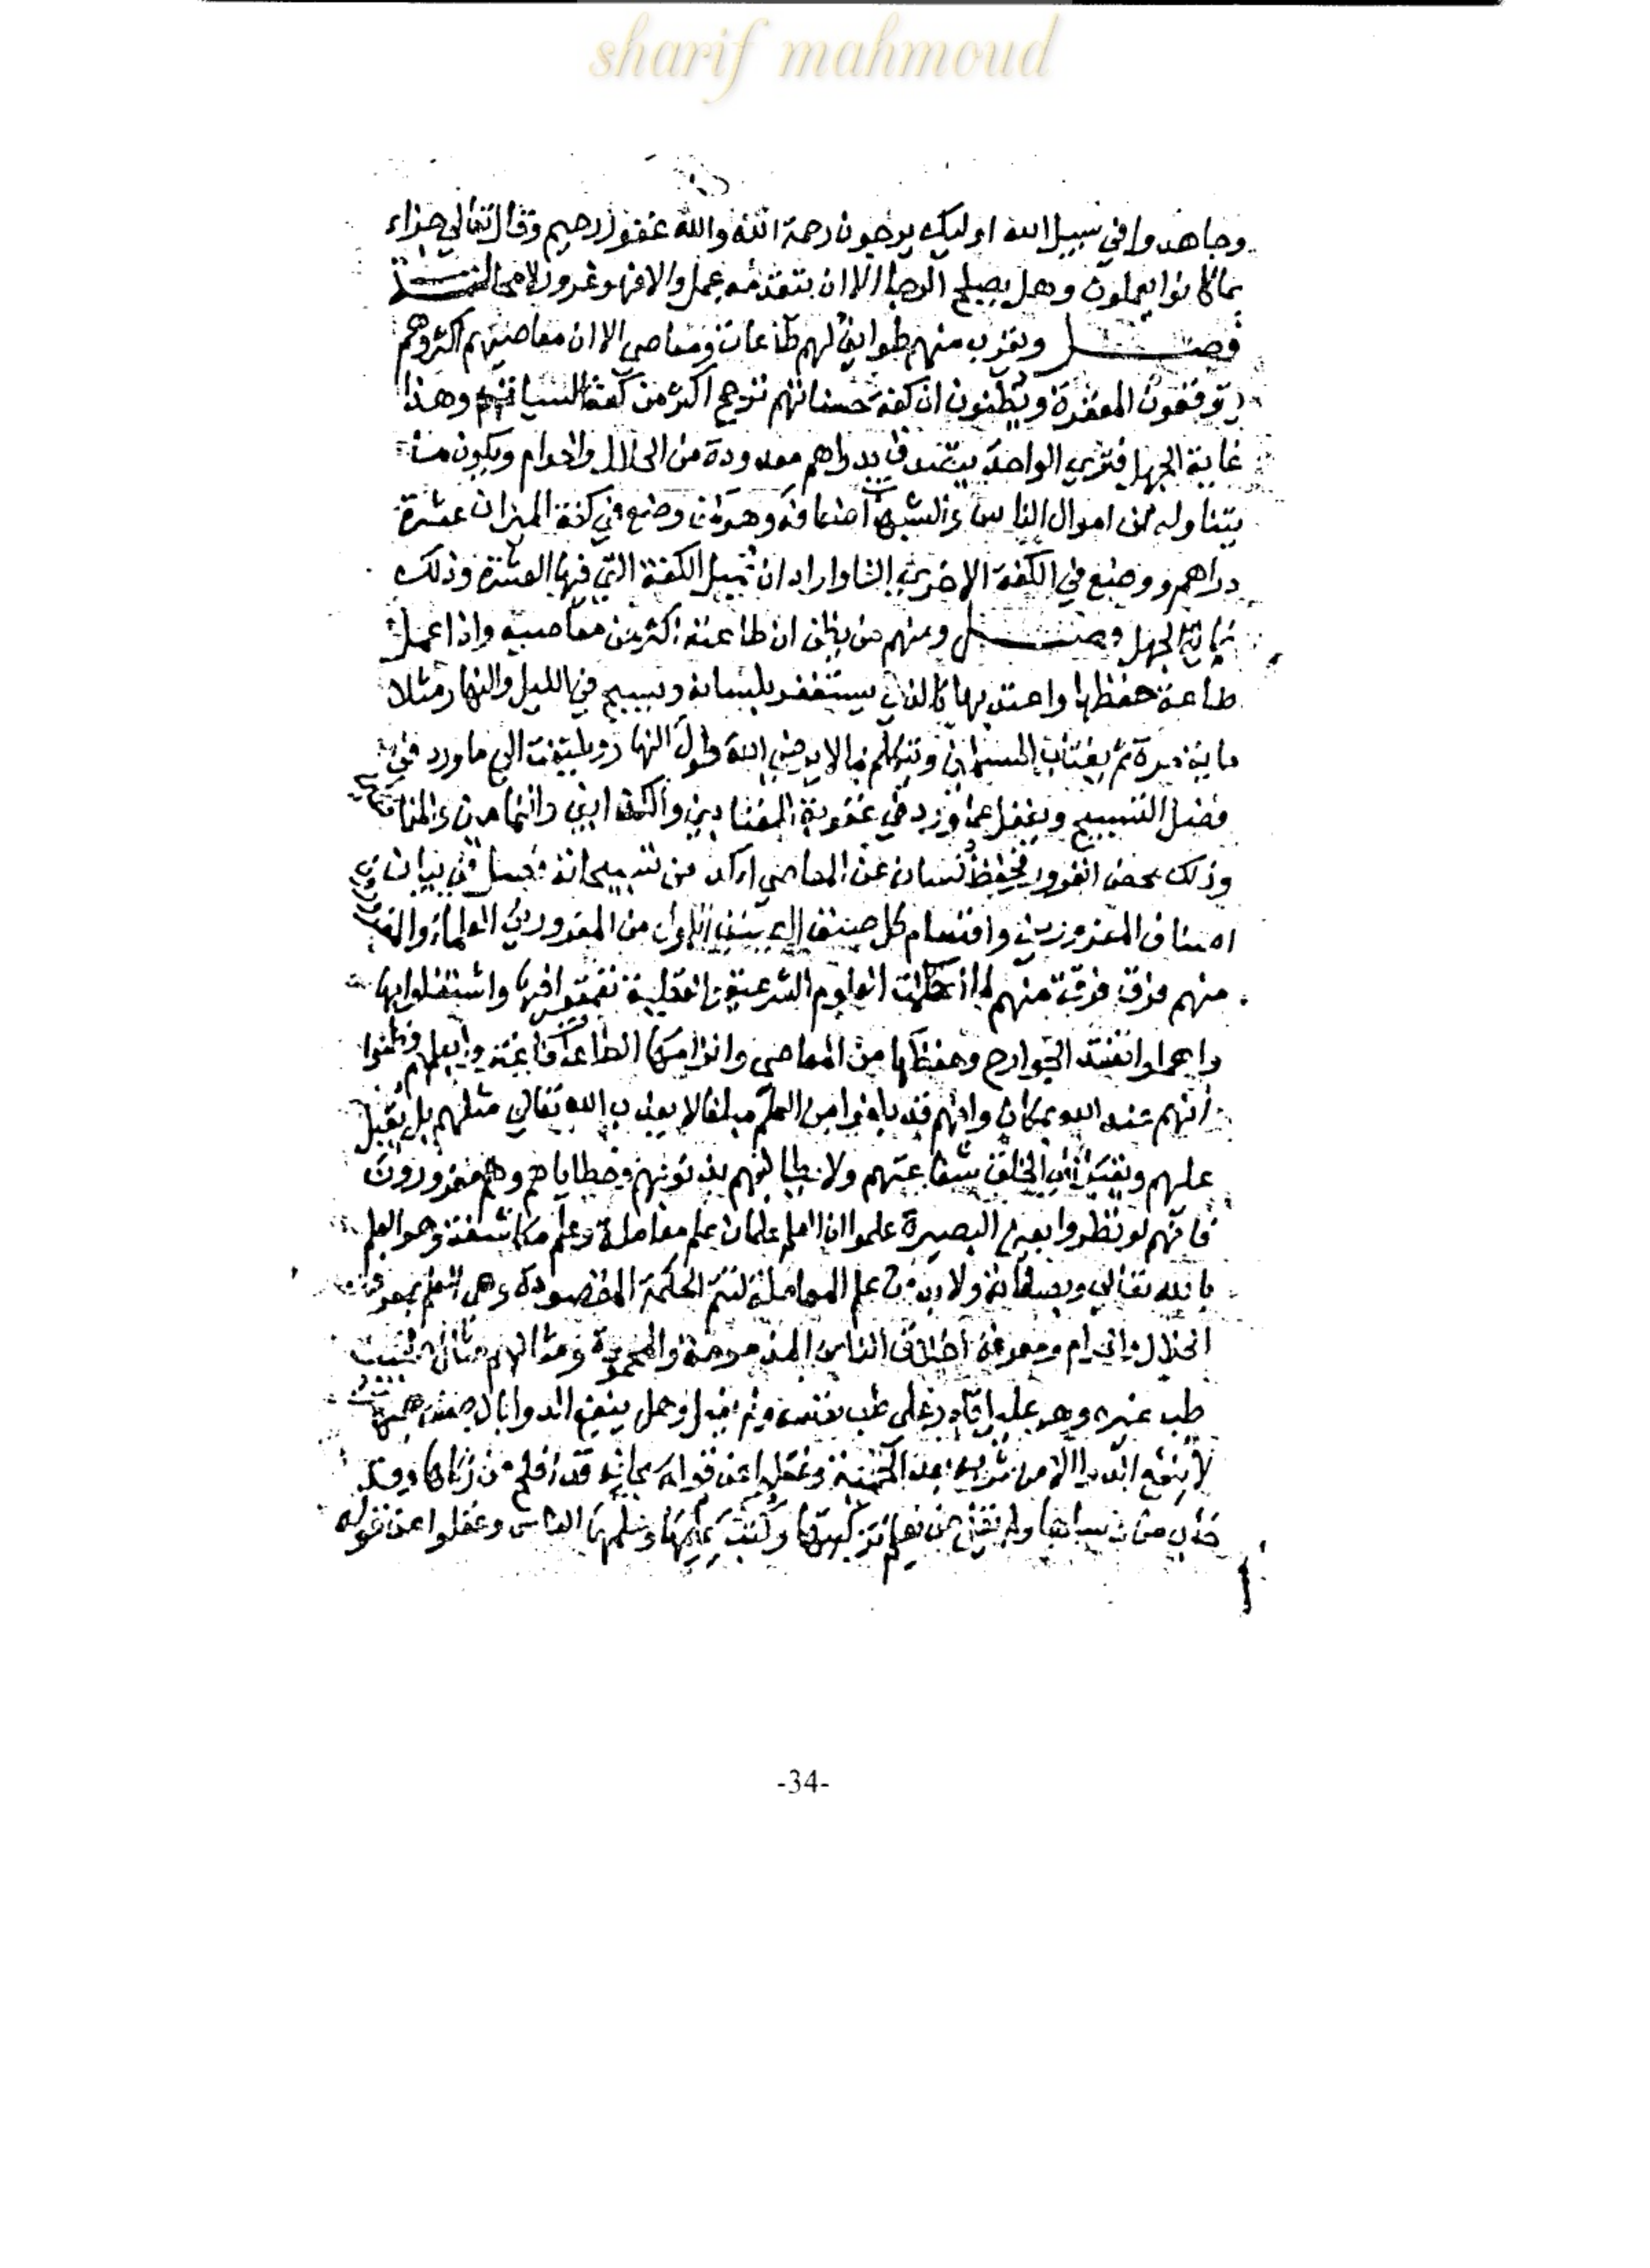 sharif mahmoud
وجاهدوا في سبيل الله اوليك يرجون رحمة الله والله غفور رحيم وقال تعالي جزاء
بما كانوا يعملون وهل يصلح الرجا الا ان يتقدمه عمل والا فهو غرور لا محالة
فصل ويقرب منهم طوايف لهم طاعات ومعاصي الا ان معاصيهم اكثر وهم
يتوقعون المغفرة ويظنون ان كفة حسناتهم ترجح اكثر من كفة السيات وهذا
غاية الجهل فتري الواحد يتصدق بدراهم معدودة من الحلال والحرام ويكون ما
يتناوله من اموال الناس والشبهات اضعافه وهو كمن وضع في كفة الميزان عشرة
دراهم ووضع في الكفة الاخري الفا واراد ان تميل الكفة التي فيها العشرة وذلك
غاية الجهل فصل ومنهم من يظن ان طاعته اكثر من معاصيه واذا عمل
طاعة حفظها واعتد بها كالذي يستغفر بلسانه ويسبح في الليل والنهار مثلا
ماية مرة ثم يغتاب المسلمين ويتكلم بما لا يرضي الله طول النهار ويلتفت الي ما ورد في
فضل التسبيح ويغفل عما ورد في عقوبة المغتابين والكذابين والنمامين والمنافقين
وذلك محض الغرور فحفظ لسانه عن المعاصي اكد من تسبيحاته فصل في بيان
اصناف المغرورين واقسام كل صنف الاول من المغرورين العلماء
منهم فرق فرقة منهم لما احكمت العلوم الشرعية والعقلية تعمقوا فيها واشتغلوا بها
واهملوا تفقد الجوارح وحفظها من المعاصي والزامها الطاعة فاغتروا بعلمهم وظنوا
انهم عند الله بمكان وانهم قد بلغوا من العلم مبلغا لا يعذب الله تعالي مثلهم بل يقبل
عليهم ويقبل في الخلق شفاعتهم ولا يطالبهم بذنوبهم وخطاياهم وهم مغرورون
فانهم لو نظروا بعين البصيرة علموا ان العلم علمان علم معاملة وعلم مكاشفة وهو العلم
بالله تعالي وبصفاته ولا بد من علم المعاملة لتتم الحكمة المقصودة وهي العلم بمعرفة
الحلال والحرام ومعرفة اخلاق الناس المذمومة والمحمودة ومثالهم مثال طبيب
طب غيره وهو عليل قادر علي طب نفسه ولم يفعل وهل ينفع الدوا بالوصف هيهات
لا ينفع الدوا الا من شربه بعد الحمية وغفلوا عن قوله تعالي قد افلح من زكاها وقد
خاب من دساها ولم يقل من يعلم تزكيتها وكتب علمها وعلمها الناس وغفلوا عن قوله
-34-